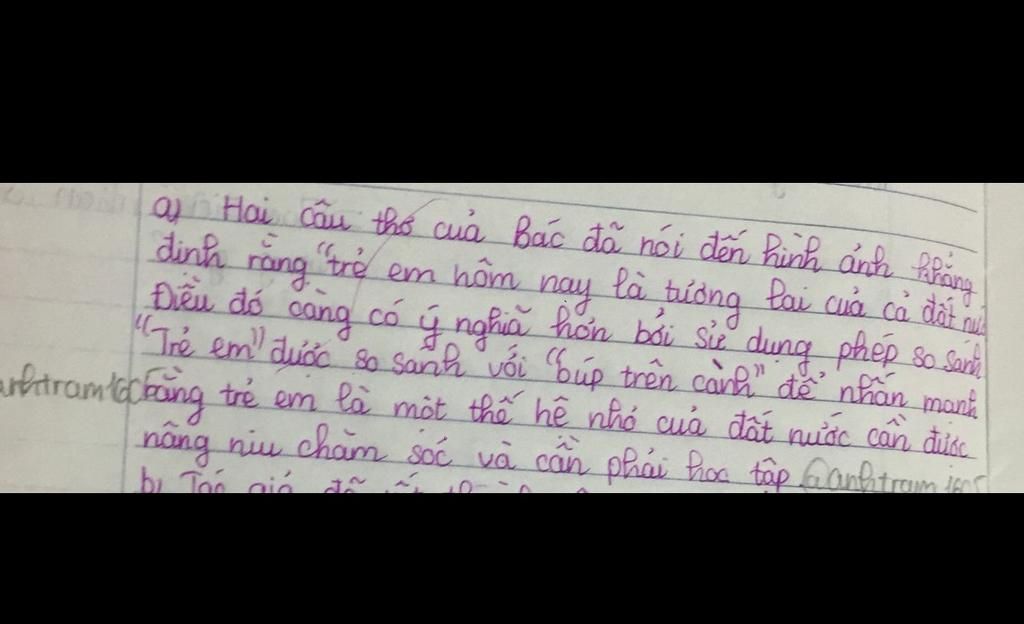 a) Hai câu thơ của Bác đã nói đến hình ảnh khẳng
định rằng "trẻ em hôm nay là tương lai của cả đất
Điều đó càng có ý nghĩa hơn bởi sử dụng phép so sánh
"Trẻ em" được so sanh với "búp trên cành" để nhấn mạnh
rằng trẻ em là một thế hệ nhỏ của đất nước cần được
nâng niu chăm sóc và cần phải học tập @anhtram1605
b) Tác giả đã